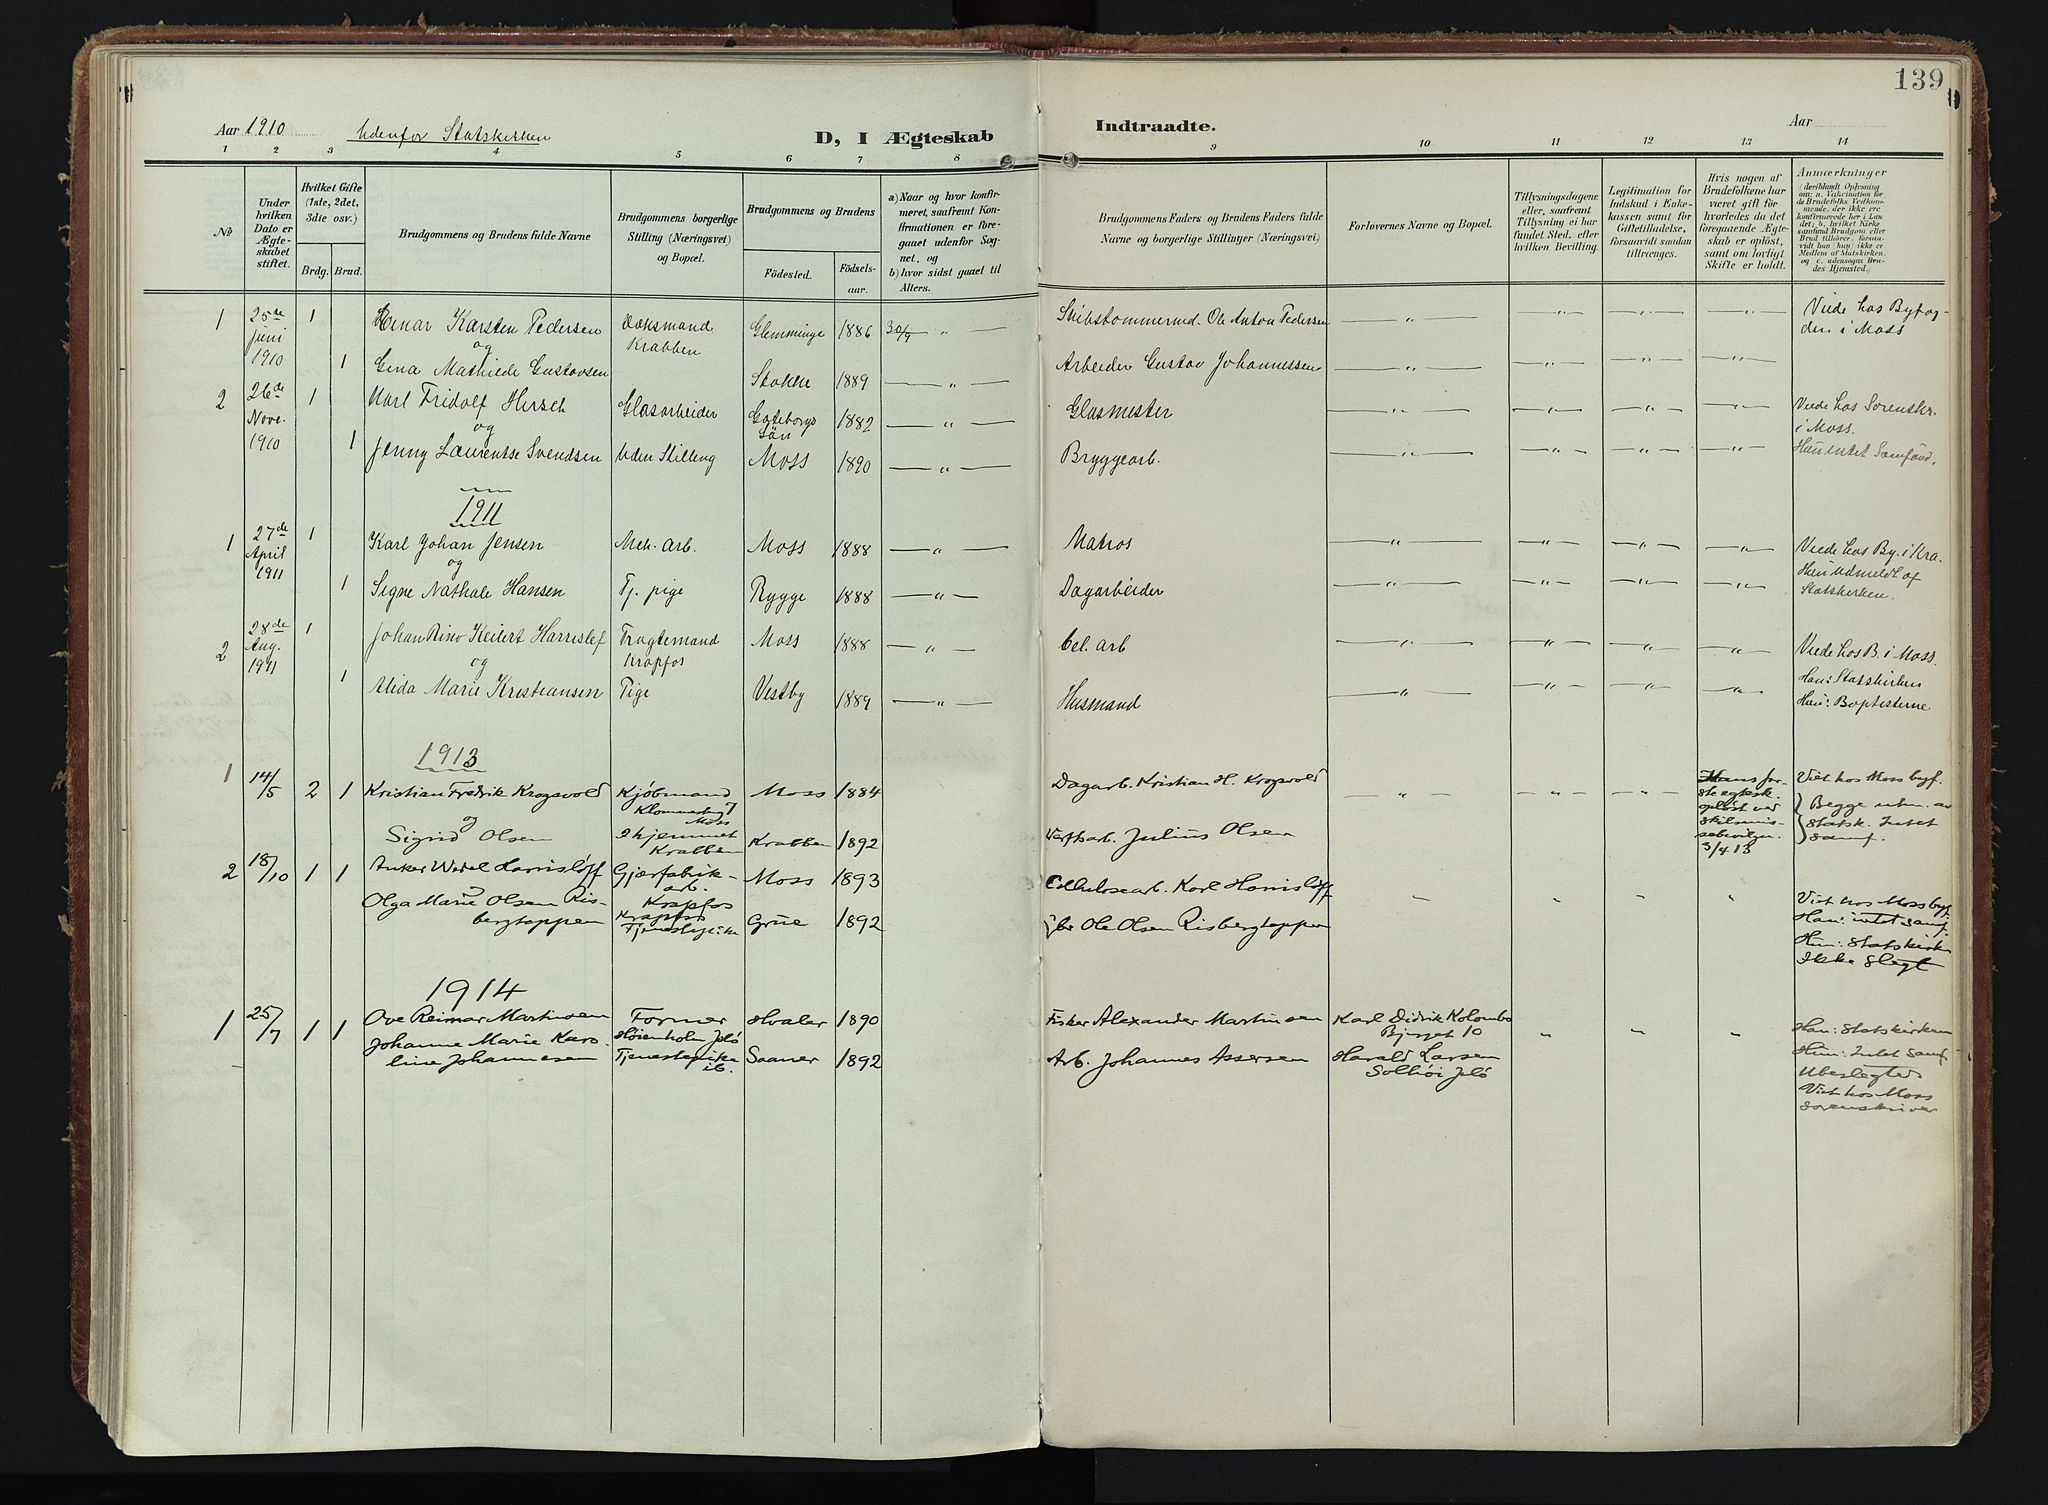 139
Aar 1910 Udenfor Statskirken
D, I Ægteskab
Indtraadte.
Aar
1 2 3 4 5 6 7 8 9 10 11 12 13 14
No
Under hvilken Dato er Ægteskabet stiftet.
Hvilket Gifte (1ste, 2det, 3die osv.)
Brdg. Brud.
Brudgommens og Brudens fulde Navne
Brudgommens borgerlige Stilling (Næringsvei) og Bopæl.
Brudgommens og Brudens
Födested. Födsels-aar.
a) Naar og hvor konfirmeret, saafremt Konfirmationen er foregaaet udenfor Sognet, og
b) hvor sidst gaaet til Alters.
Brudgommens Faders og Brudens Faders fulde Navne og borgerlige Stillinger (Næringsvei)
Forlovernes Navne og Bopæl.
Tillysningsdagene eller, saafremt Tillysning ei har fundet Sted, efter hvilken Bevilling.
Legitimation for Indskud i Enkekassen samt for Giftetilladelse, forsaavidt saadan tiltrænges.
Hvis nogen af Brudefolkene har været gift för hvorledes da det foregaaende Ægteskab er oplöst, samt om lovligt Skifte er holdt.
Anmærkninger
(deriblandt Oplysning om: a. Vakcination for de Brudefolks Vedkommende, der ikke ere konfirmerede her i Landet; b. hvilket Kirkesamfund Brudgom eller Brud tilhörer, forsaavidt han (hun) ikke er Medlem af Statskirken og c. udensogns Brudes Hjemsted.)
1 25de Juni 1910 1 Einar Karsten Pedersen Glemminge 1886 30/9 " Skibstømmermd. Ole Anton Pedersen " " " " Viede hos Byfogden i Moss
og Krabben
1 Gina Mathilde Gustavsen Stokke 1889 " Arbeider Gustav Johannessen " " " "
2 26de Nove. 1910 1 Karl Fridolf Hersch Glasarbeider Gøteborgs Län 1882 " Glasmester " " " " Viede hos Sorenskr. i Moss.
og
1 Jenny Laurentse Svendsen Uden Stilling Moss 1890 " Bryggearb. " " " " Hun intet Samfund.
1911
1 27de April 1911 1 Karl Johan Jensen Mek. arb. Moss 1888 " Matros " " " " Viede hos By. i Kra.
og
1 Signe Nathale Hansen Tj. pige Rygge 1888 " Dagarbeider " " " " Hun Udmeldt af Statskirken.
2 28de Aug. 1911 1 Johan Rino Keilert Harrislef Fragtemand Krapfos Moss 1888 " Cel. arb " " " " Viede hos B. i Moss.
og
1 Alida Marie Kristiansen Pige Vestby 1889 " Husmand " " " " Han: Statskirken
Hun: Baptisterne
1913
1 14/5 2 1 Kristian Fredrik Krogsvold Kjøbmand Moss 1884 Dagarb. Kristian H. Krogsvold " " " Hans første egtesk. opløst ved skilsmissebevilgn. 3/4 13 Viet hos Moss byf.
og Moss
Sigrid Olsen i hjemmet Krabben Krabben 1892 Verftsarb. Julius Olsen Begge utm. av statsk. Intet samf.
2 18/10 1 1 Anker Wedel Harrisløff Gjærfabrik-arb. Krapfos Moss 1893 Cellulosearb. Karl Harrisløff " " " " Viet hos Moss byf.
og Han: intet samf.
Olga Marie Olsen Risbergtoppen Krapfos Tjenestepike Grue 1892 Ole Olsen Risbergtoppen Hun: Statskirken
Ikke slegt
1914
1 25/7 1 1 Ove Reimar Martinsen Former Høienholm Jelø Hvaler 1890 Fisker Alexander Martinsen Karl Didrik Kolombo Bjerget 10 " " " Han: Statskirken
Johanne Marie Karoline Johannesen Tjenestepike ib. Saaner 1892 Arb. Johannes Assersen Harald Larsen Solhøi Jelø Hun: Intet samf.
Ubeslegted
Viet hos Moss
sorenskriver